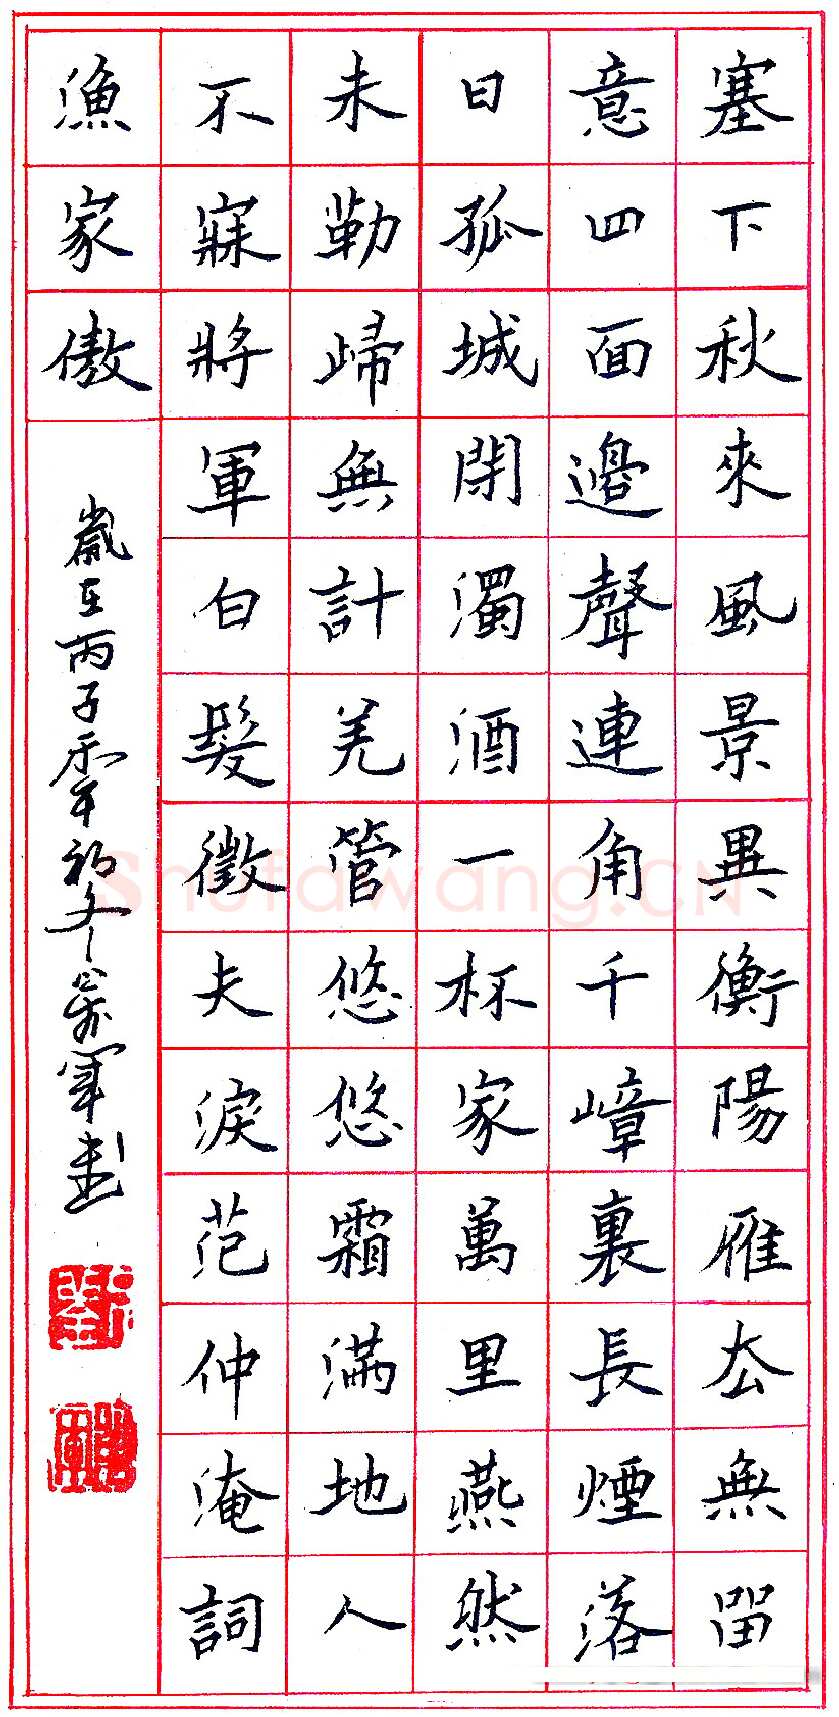 塞下秋來風景異衡陽雁去無留
意四面邊聲連角千嶂裏長煙落
日孤城閉濁酒一杯家萬里燕然
未勒歸無計羌管悠悠霜滿地人
不寐將軍白髮徵夫淚范仲淹詞
漁家傲
歲在丙子年初冬軍書
Shufawang.CN